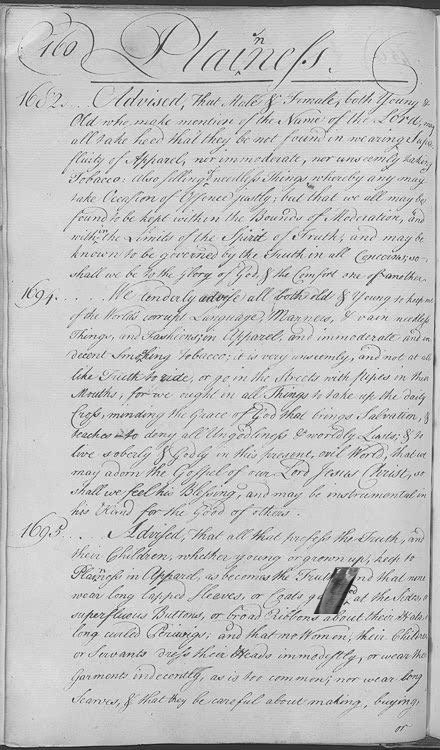 160 Plainness.
1682... Advised, that Male & Female, both Young &
Old who make mention of the Name of the Lord, may
all take heed that they be not found in wearing Supr
fluity of Apparel, nor immoderate, nor unseemly taking
Tobacco: also selling needless Things whereby any may
take Occasion of Offence justly; but that we all may be
found to be kept within the Bounds of Moderation, and
within the Limits of the Spirit of Truth; and may be
known to be governed by the Truth in all Concerns, so
shall we be to the Glory of God, & the Comfort one of another.
1694..... We tenderly advise all both old & Young to keep out
of the Worlds corrupt Language, Manners, & vain needless
Things, and Fashions, in Apparel; and immoderate and in
decent Smoking tobacco; it is very unseemly, and not at all
like Truth to ride, or go in the Streets with pipes in their
Mouths; for we ought in all Things to take up the daily
Cross, minding the Grace of God that brings Salvation, &
teaches to deny all Ungodliness & worldly Lusts; & to
live soberly & Godly in this present, evil World, that we
may adorn the Gospel of our Lord Jesus Christ, so
shall we feel his Blessing, and may be instrumental in
his Hand for the Good of others.
1695... Advised, That all that profess the Truth, and
their Children, whether young or grown up, keep to
Plainness in Apparel, as becomes the Truth and that none
wear long lapped Sleaves, or Coats at the Sides, or
superfluous Buttons, or broad Ribbons about their Hats, or
long curled Periwigs; and that no Women, their Children
or Servants dress their Heads immodestly, or wear their
Garments indecently, as is too common; nor wear long
Scarves, & that they be careful about making, buying,
or